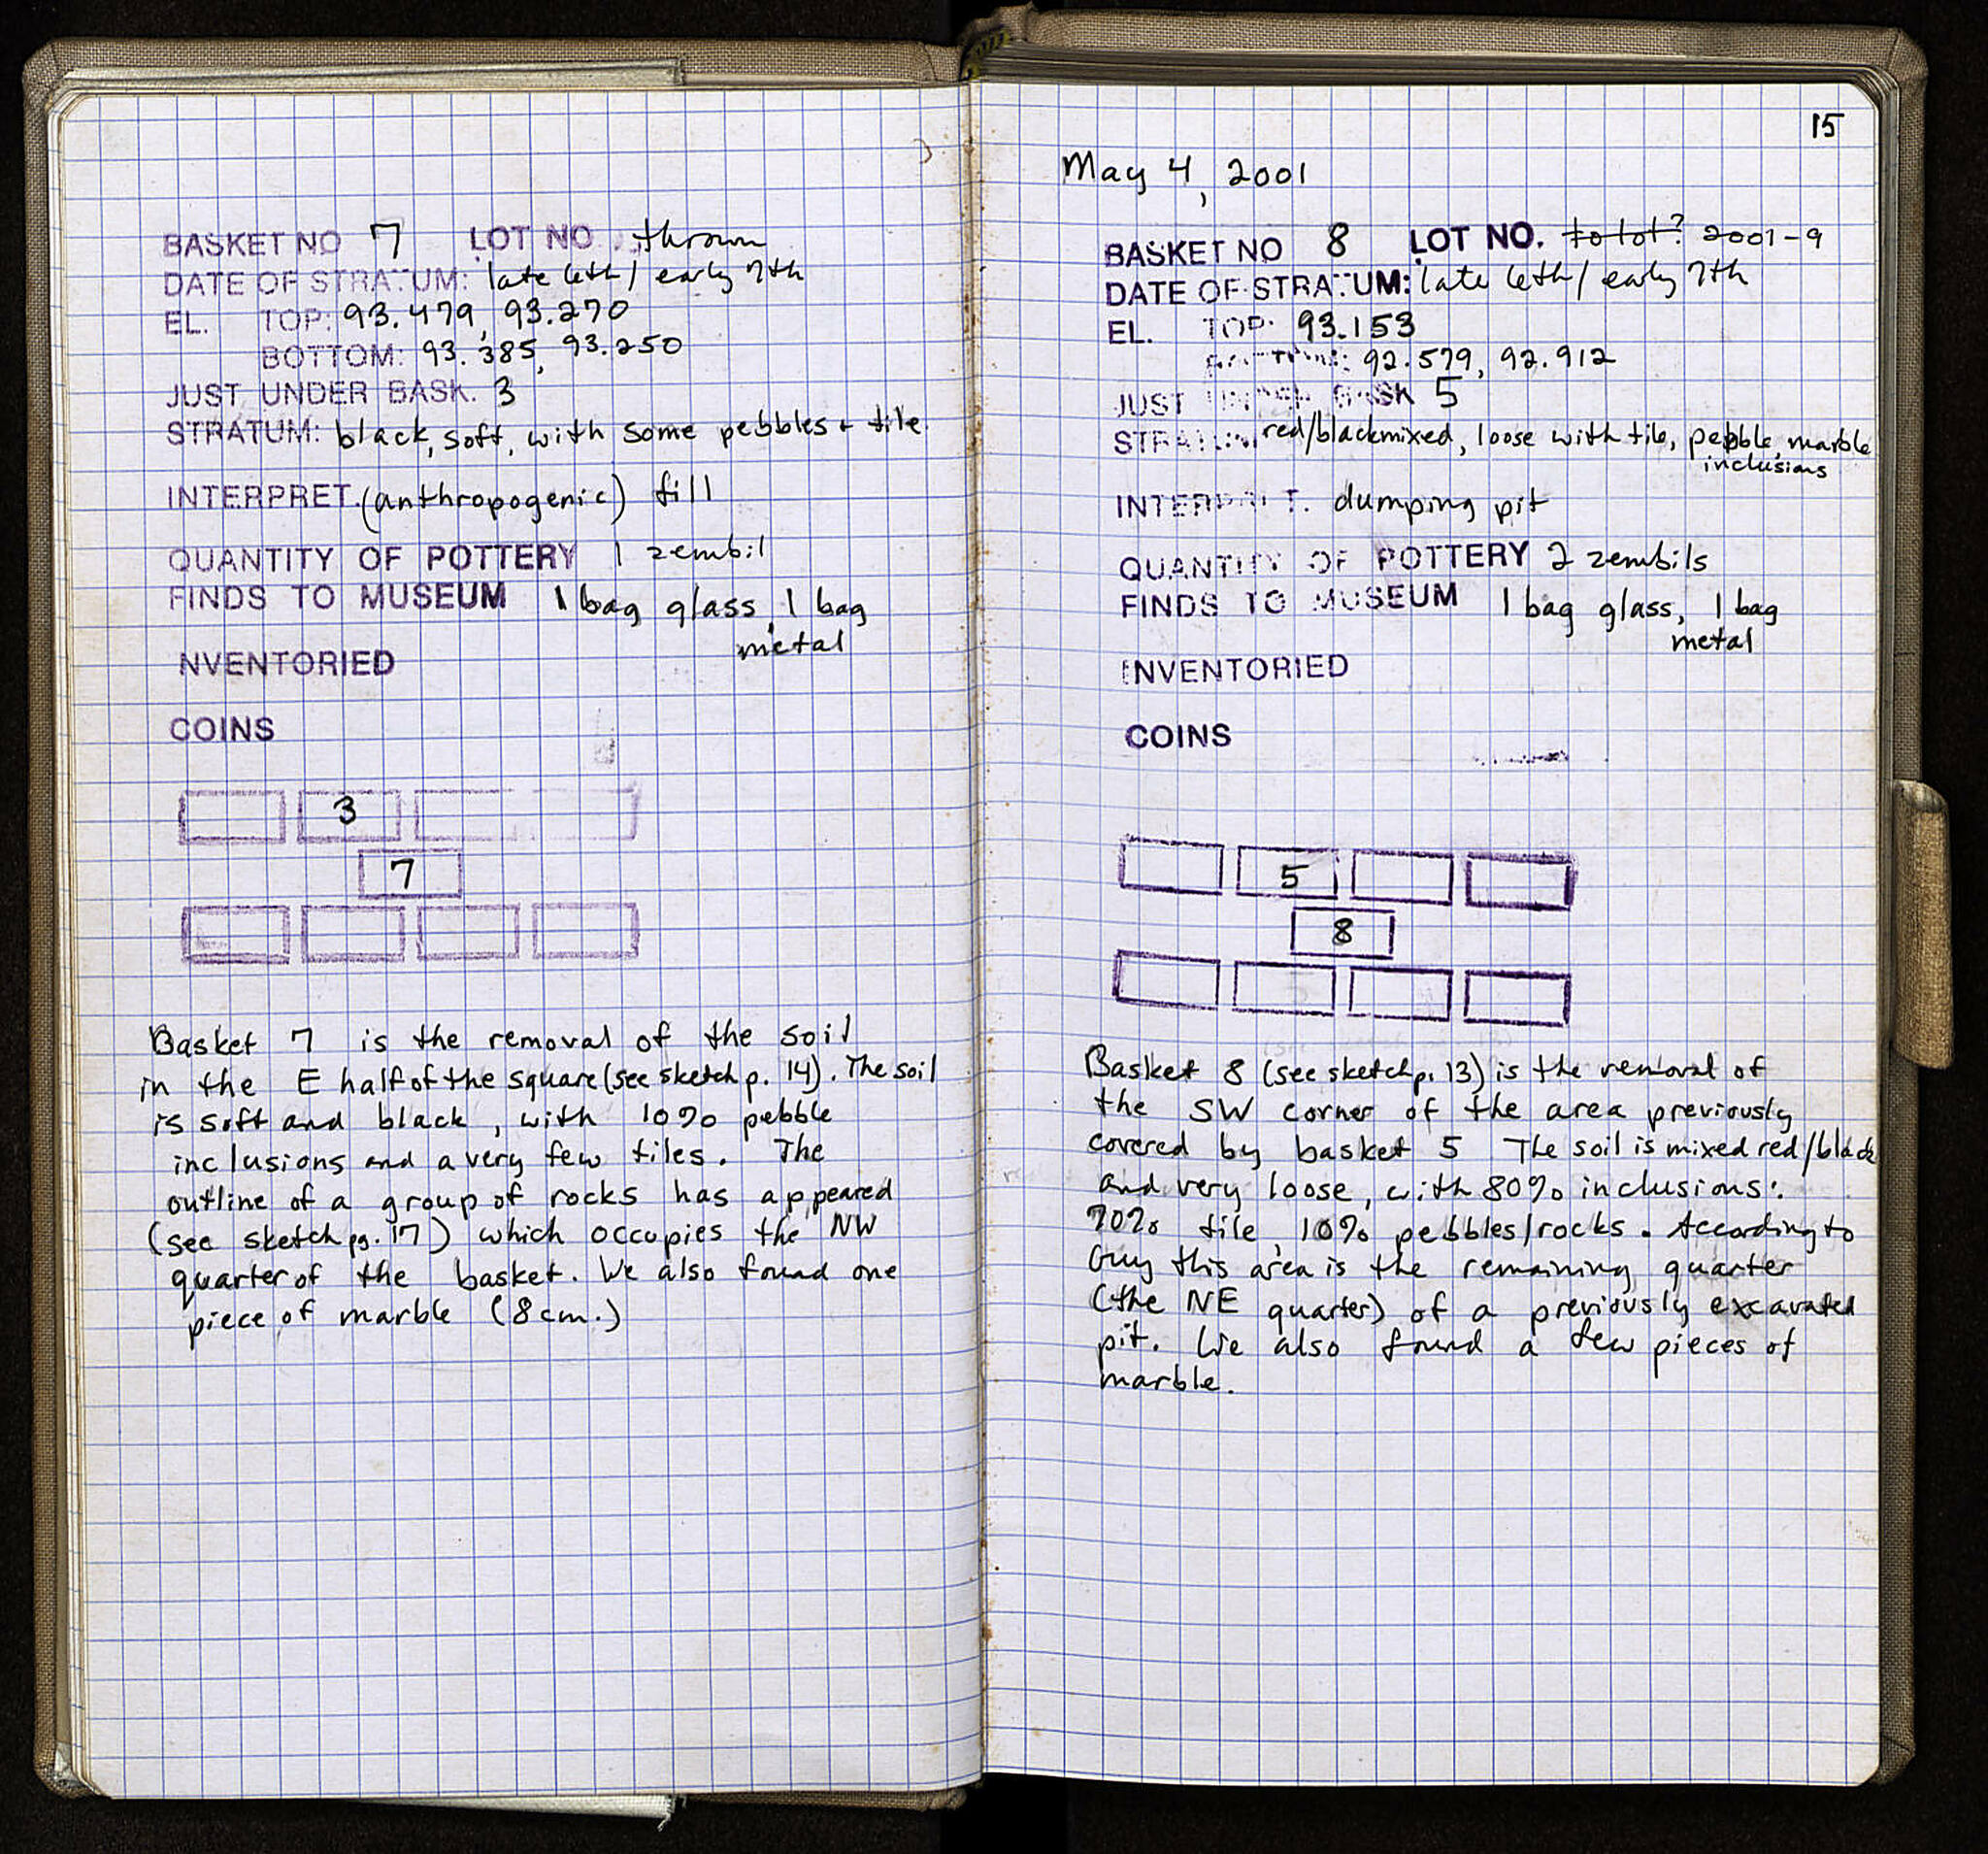 BASKET NO 7 LOT NO. thrown
DATE OF STRATUM: late 6th / early 7th
EL. TOP: 93.479, 93.270
BOTTOM: 93.385, 93.250
JUST UNDER BASK. 3
STRATUM: black, soft, with some pebbles + tile
INTERPRET. (anthropogenic) fill
QUANTITY OF POTTERY 1 zembil
FINDS TO MUSEUM 1 bag glass, 1 bag
metal
NVENTORIED
COINS
3
7
Basket 7 is the removal of the soil
in the E half of the square (see sketch p. 14). The soil
is soft and black, with 10% pebble
inclusions and a very few tiles. The
outline of a group of rocks has appeared
(see sketch pg. 17) which occupies the NW
quarter of the basket. We also found one
piece of marble (8 cm.)
15
May 4, 2001
BASKET NO 8 LOT NO. to lot? 2001-9
DATE OF STRATUM: late 6th / early 7th
EL. TOP: 93.153
BOTTOM: 92.579, 92.912
JUST UNDER BASK 5
STRATUM red/black mixed, loose with tile, pebble, marble
inclusions
INTERPRET. dumping pit
QUANTITY OF POTTERY 2 zembils
FINDS TO MUSEUM 1 bag glass, 1 bag
metal
INVENTORIED
COINS
5
8
Basket 8 (see sketch p. 13) is the removal of
the SW corner of the area previously
covered by basket 5 The soil is mixed red/black
and very loose, with 80% inclusions:
70% tile, 10% pebbles/rocks. According to
Guy this area is the remaining quarter
(the NE quarter) of a previously excavated
pit. We also found a few pieces of
marble.